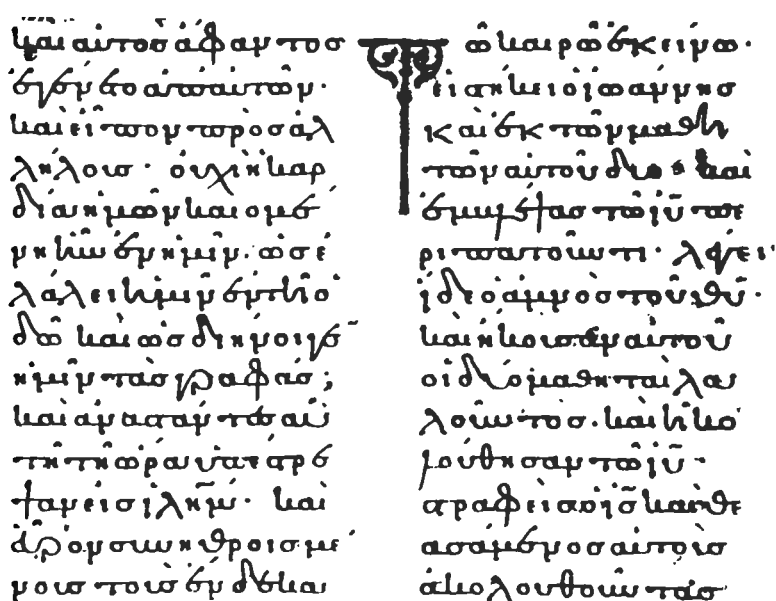 καὶ αὐτὸσ ἄφαντοσ
ἐγένετο ἀπ αὐτῶν·
καὶ εἶπον πρὸσ ἀλ
λήλουσ· οὐχὶ ἡ καρ
δία ἡμῶν καιομέ
νη ἦν ἐν ἡμῖν· ὡσ ἐ
λάλει ἡμῖν ἐν τῆ ὁ
δῶ καὶ ὡσ διήνοιγε̅
ἡμῖν τὰσ γραφάσ;
καὶ ἀναστάντεσ αὐ
τῆ τῆ ὥρα ὑπέστρε
ψαν εἰσ ιλημ· καὶ
εὗρον συνηθροισμέ
νουσ τοὺσ ἕνδεκα
Τῶ καιρῶ ἐκείνω·
εἱστήκει ὁ ἰωάννησ
καὶ ἐκ τῶν μαθη
τῶν αὐτοῦ δύο· καὶ
ἐμβλέψασ τῶ ιυ̅ πε
ριπατοῦντι· λέγει·
ἴδε ὁ ἀμνὸσ τοῦ θυ̅·
καὶ ἤκουσαν αὐτοῦ
οἱ δύο μαθηταὶ λα
λοῦντοσ· καὶ ἠκο
λούθησαν τῶ ιυ̅·
στραφεὶσ ὁ ισ̅ καὶ θε
ασάμενοσ αὐτοὺσ
ἀκολουθοῦντασ